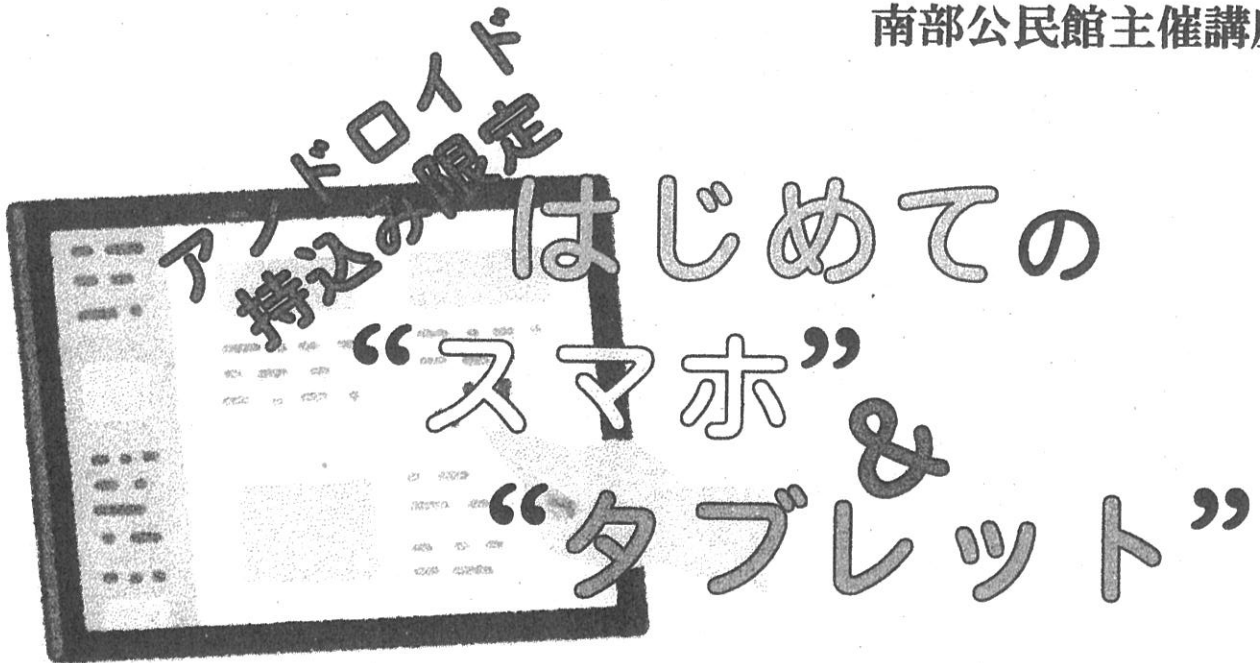 南部公民館主催講座
アンドロイド
持込み限定
はじめての
“スマホ”
&
“タブレット”